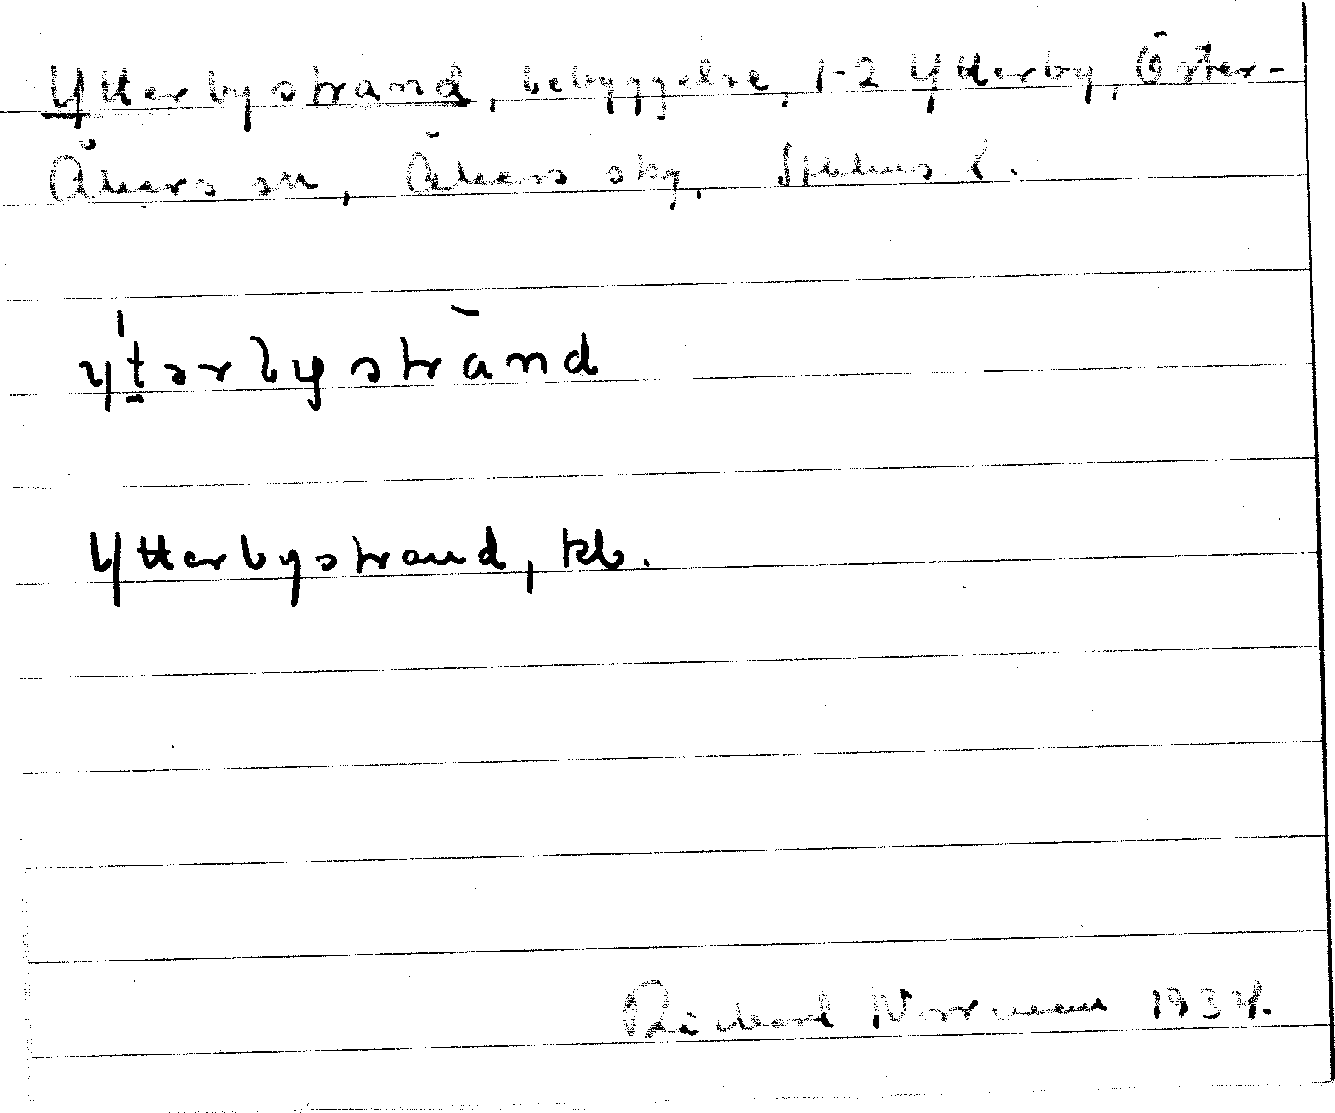 Ytterbystrand, bebyggelse, 1-2 Ytterby, Öster-
Åkers sn, Åkers sky, Sthlms l.
y'tərbystrànd
Ytterbystrand, kb.
Richard Norrman 1934.